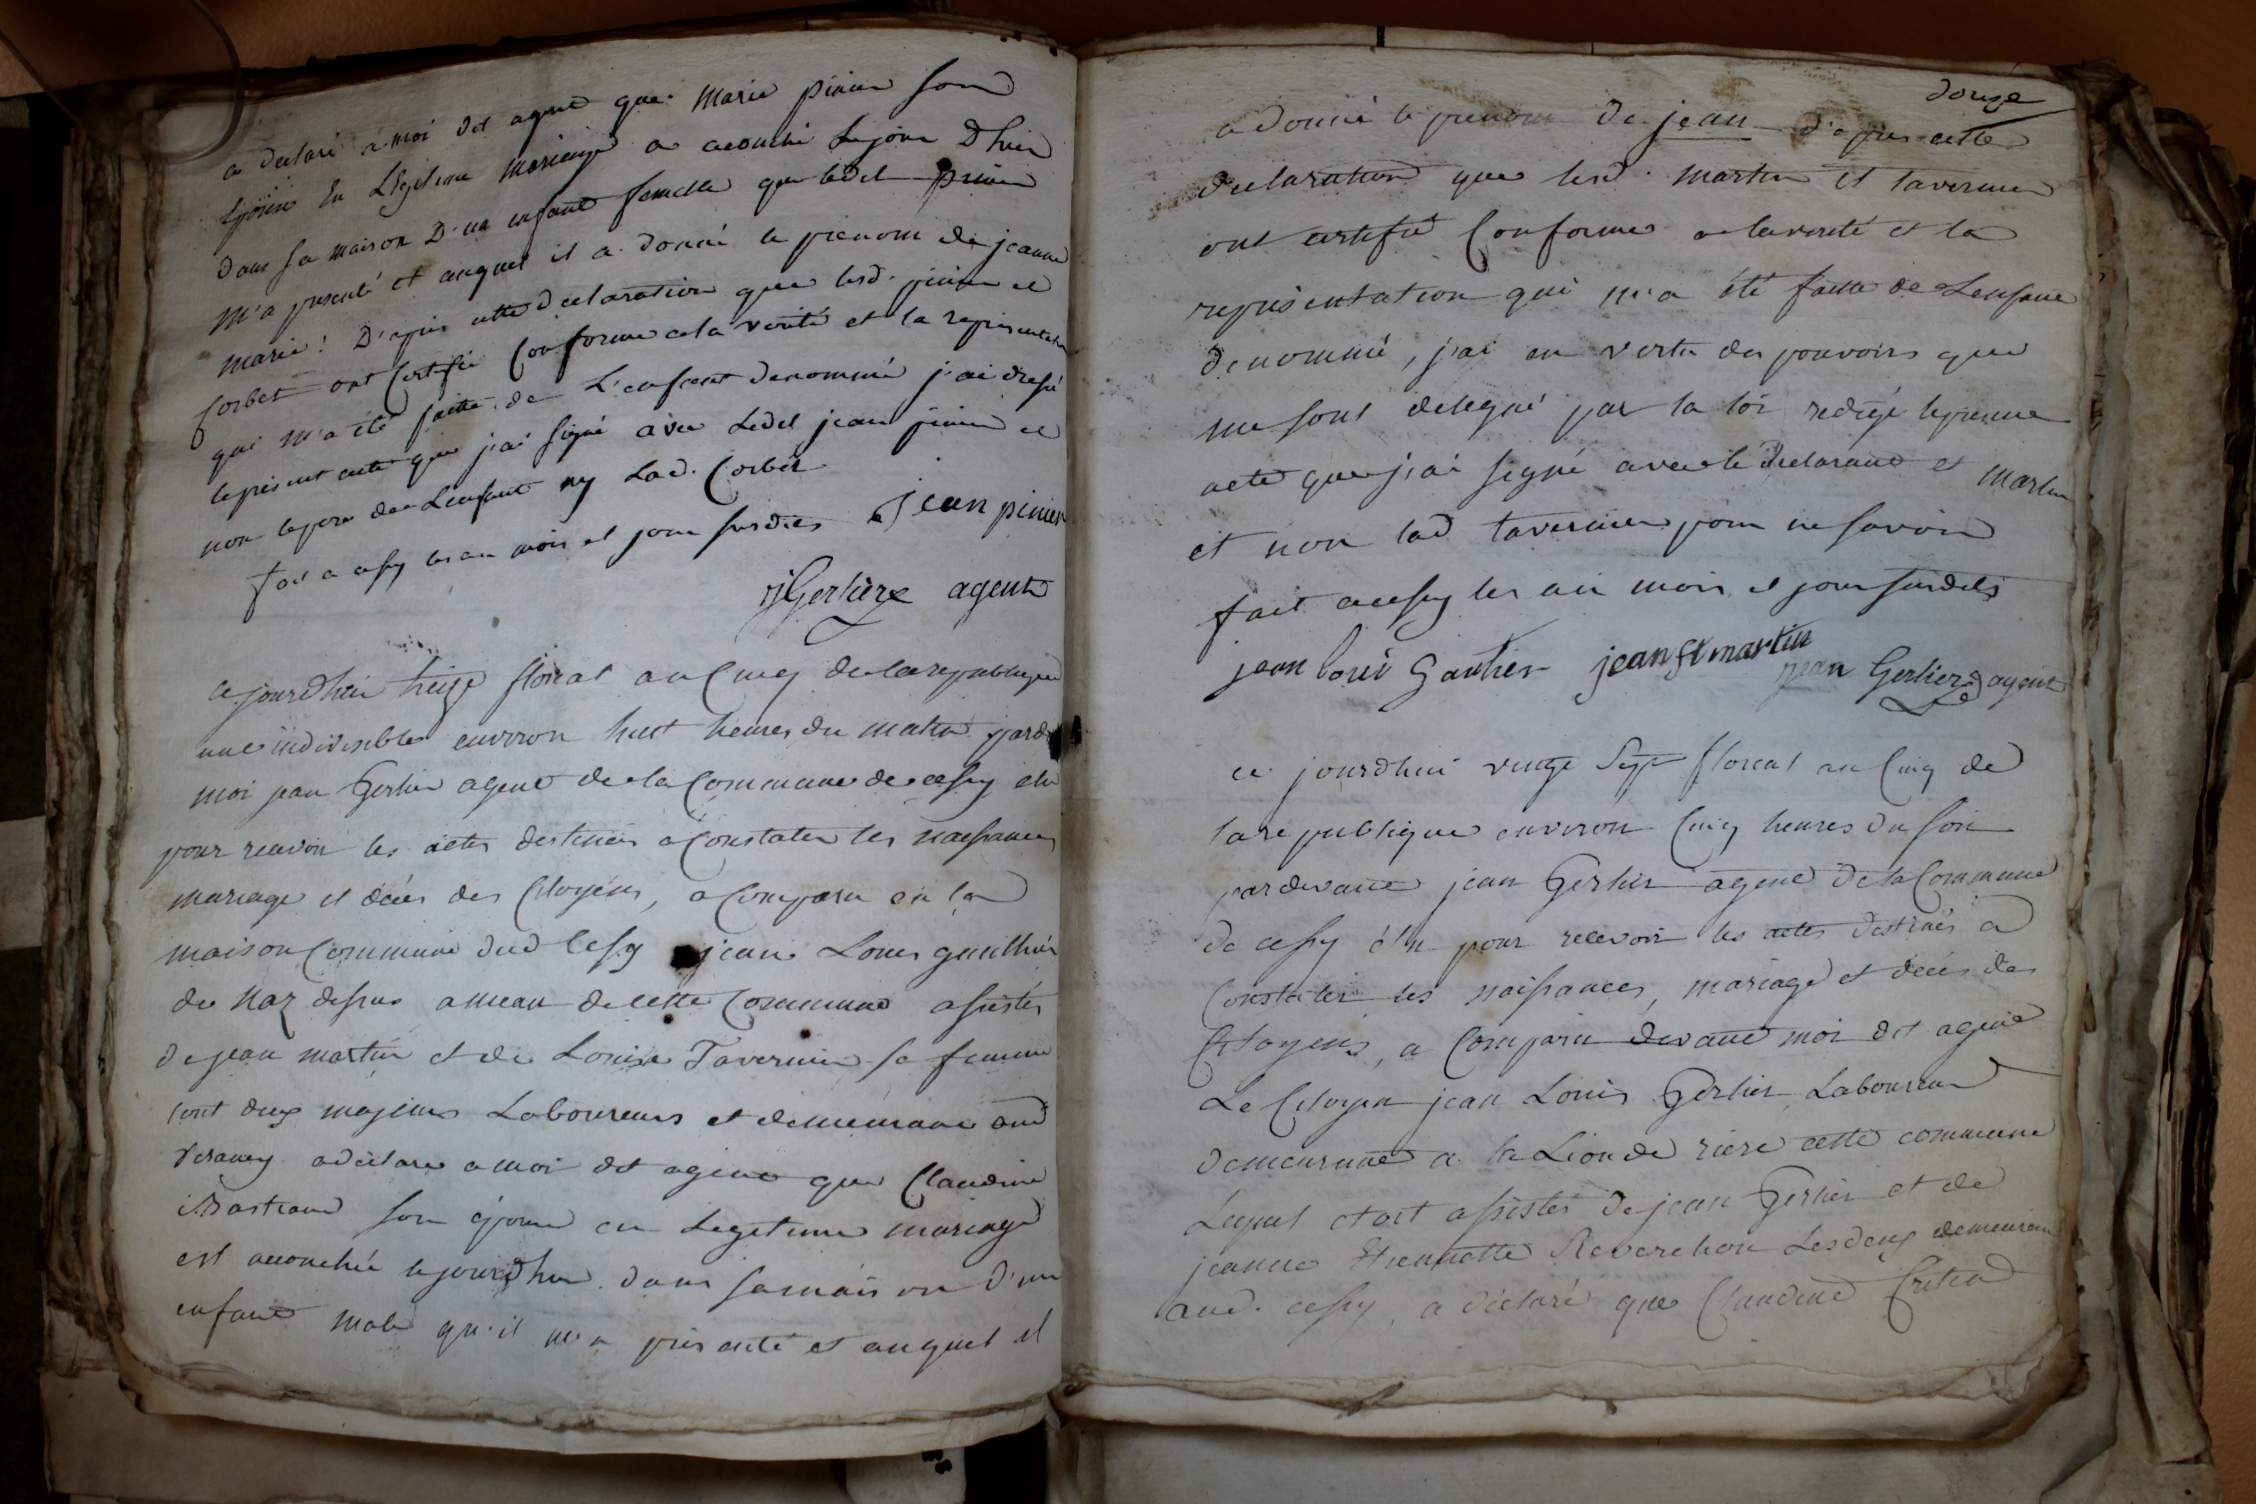 a declaré a moi dit agent que Marie pinier son
épouse En Légitime Mariage a acouché Le jour D'hier
dans sa maison D'un enfant femelle que ledit pinier
m'a presenté et auquel il a donné le prenom de jeanne
marie : D'apres cette declaration que lesd. pinier et
Corbet ont Certifié Conforme a la verité et la representation
qui m'a été faitte de L'enfant denommé j'ai dressé
le present acte que j'ai signé avec Ledit jean pinier et
non le pere de L'enfant ny Lad. Corbet
fait a cessy les an mois et jour susdits jean pinier
j Gerlier agent
ce jourdhui treize floreal an Cinq de la republique
une indivisible environ huit heures du matin pard
moi jean Gerlier agent de la Commune de cessy elu
pour recevoir les actes destinés a Constater les naissances
mariage et décés des Citoyens, a Comparu en la
maison Commune dud Cessy jean Louis gauthier
de Naz dessus ameau de cette Commune assistés
De jean martin et de Louise Tavernier sa femme
tout deux majeurs Laboureurs et demeurant aud
Veraney a déclaré a moi dit agent que Claudine
Bastian son épouse en Legitime mariage
est accouchée le jourdhui dans sa maison d'un
enfant male qu'il m'a présenté et auquel il
douze
a donné le prenom De jean d'apres cette
declaration que lesd. martin et tavernier
ont certifié Conforme a la verité et la
representation qui m'a été faitte de Lenfant
denommé, j'ai en vertu des pouvoirs que
me sont delegué par la loi redigé le present
acte que j'ai signé avec le Declarant et martin
et non lad tavernier pour ne savoir
fait a cessy les an mois et jour susdits
jean loui Gautier jean fs martin jean Gerlier agent
ce jourdhui vingt sept floreal an Cinq de
la republique environ Cinq heures du soir
pardevant jean Gerlier agent de la Commune
de cessy élu pour recevoir les actes destinés a
Constater les naissances, mariage et décés des
Citoyens, a Comparu devant moi dit agent
Le Citoyen jean Louis Gerlier Laboureur
demeurant a la Lionde riere cette commune
Lequel etoit assistés De jean Gerlier et de
jeanne Etiennette Reverchon Les deux demeurant
aud. cessy, a déclaré que Claudine Cretin